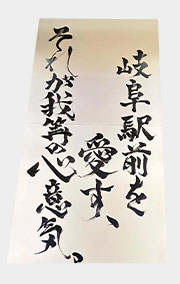 岐阜駅前を
愛す、
それが我等の心意気。